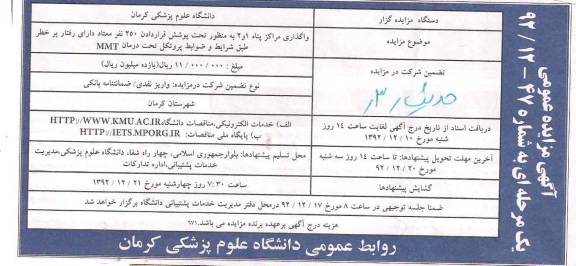 آگهی مزایده عمومی
یک مرحله ای به شماره ۴۷ – ۹۲/۱۲
دستگاه مزایده گزار
دانشگاه علوم پزشکی کرمان
موضوع مزایده
واگذاری مراکز پناه ۱و۲ به منظور تحت پوشش قراردادن ۲۵۰ نفر معتاد دارای رفتار پر خطر
طبق شرایط و ضوابط پروتکل تحت درمان MMT
تضمین شرکت در مزایده
مبلغ : ۱۱/۰۰۰/۰۰۰ ریال(یازده میلیون ریال)
نوع تضمین شرکت درمزایده: واریز نقدی/ ضمانتنامه بانکی
شهرستان کرمان
دریافت اسناد از تاریخ درج آگهی لغایت ساعت ۱۴ روز
شنبه مورخ ۱۳۹۲/۱۲/۱۰
الف) خدمات الکترونیکی،مناقصات دانشگاهHTTP://WWW.KMU.AC.IR
ب) پایگاه ملی مناقصات: HTTP://IETS.MPORG.IR
آخرین مهلت تحویل پیشنهادها: تا ساعت ۱۴ روز سه شنبه
مورخ ۹۲/۱۲/۲۰
محل تسلیم پیشنهادها: بلوارجمهوری اسلامی، چهار راه شفا، دانشگاه علوم پزشکی،مدیریت
خدمات پشتیبانی،اداره تدارکات
گشایش پیشنهادها
ساعت ۷:۳۰ روز چهارشنبه مورخ ۱۳۹۲/۱۲/۲۱
ضمنا جلسه توجیهی در ساعت ۸ مورخ ۹۲/۱۲/۱۷ درمحل دفتر مدیریت خدمات پشتیبانی دانشگاه برگزار خواهد شد
هزینه درج آگهی برعهده برنده مزایده می باشد.۶۷۱
روابط عمومی دانشگاه علوم پزشکی کرمان